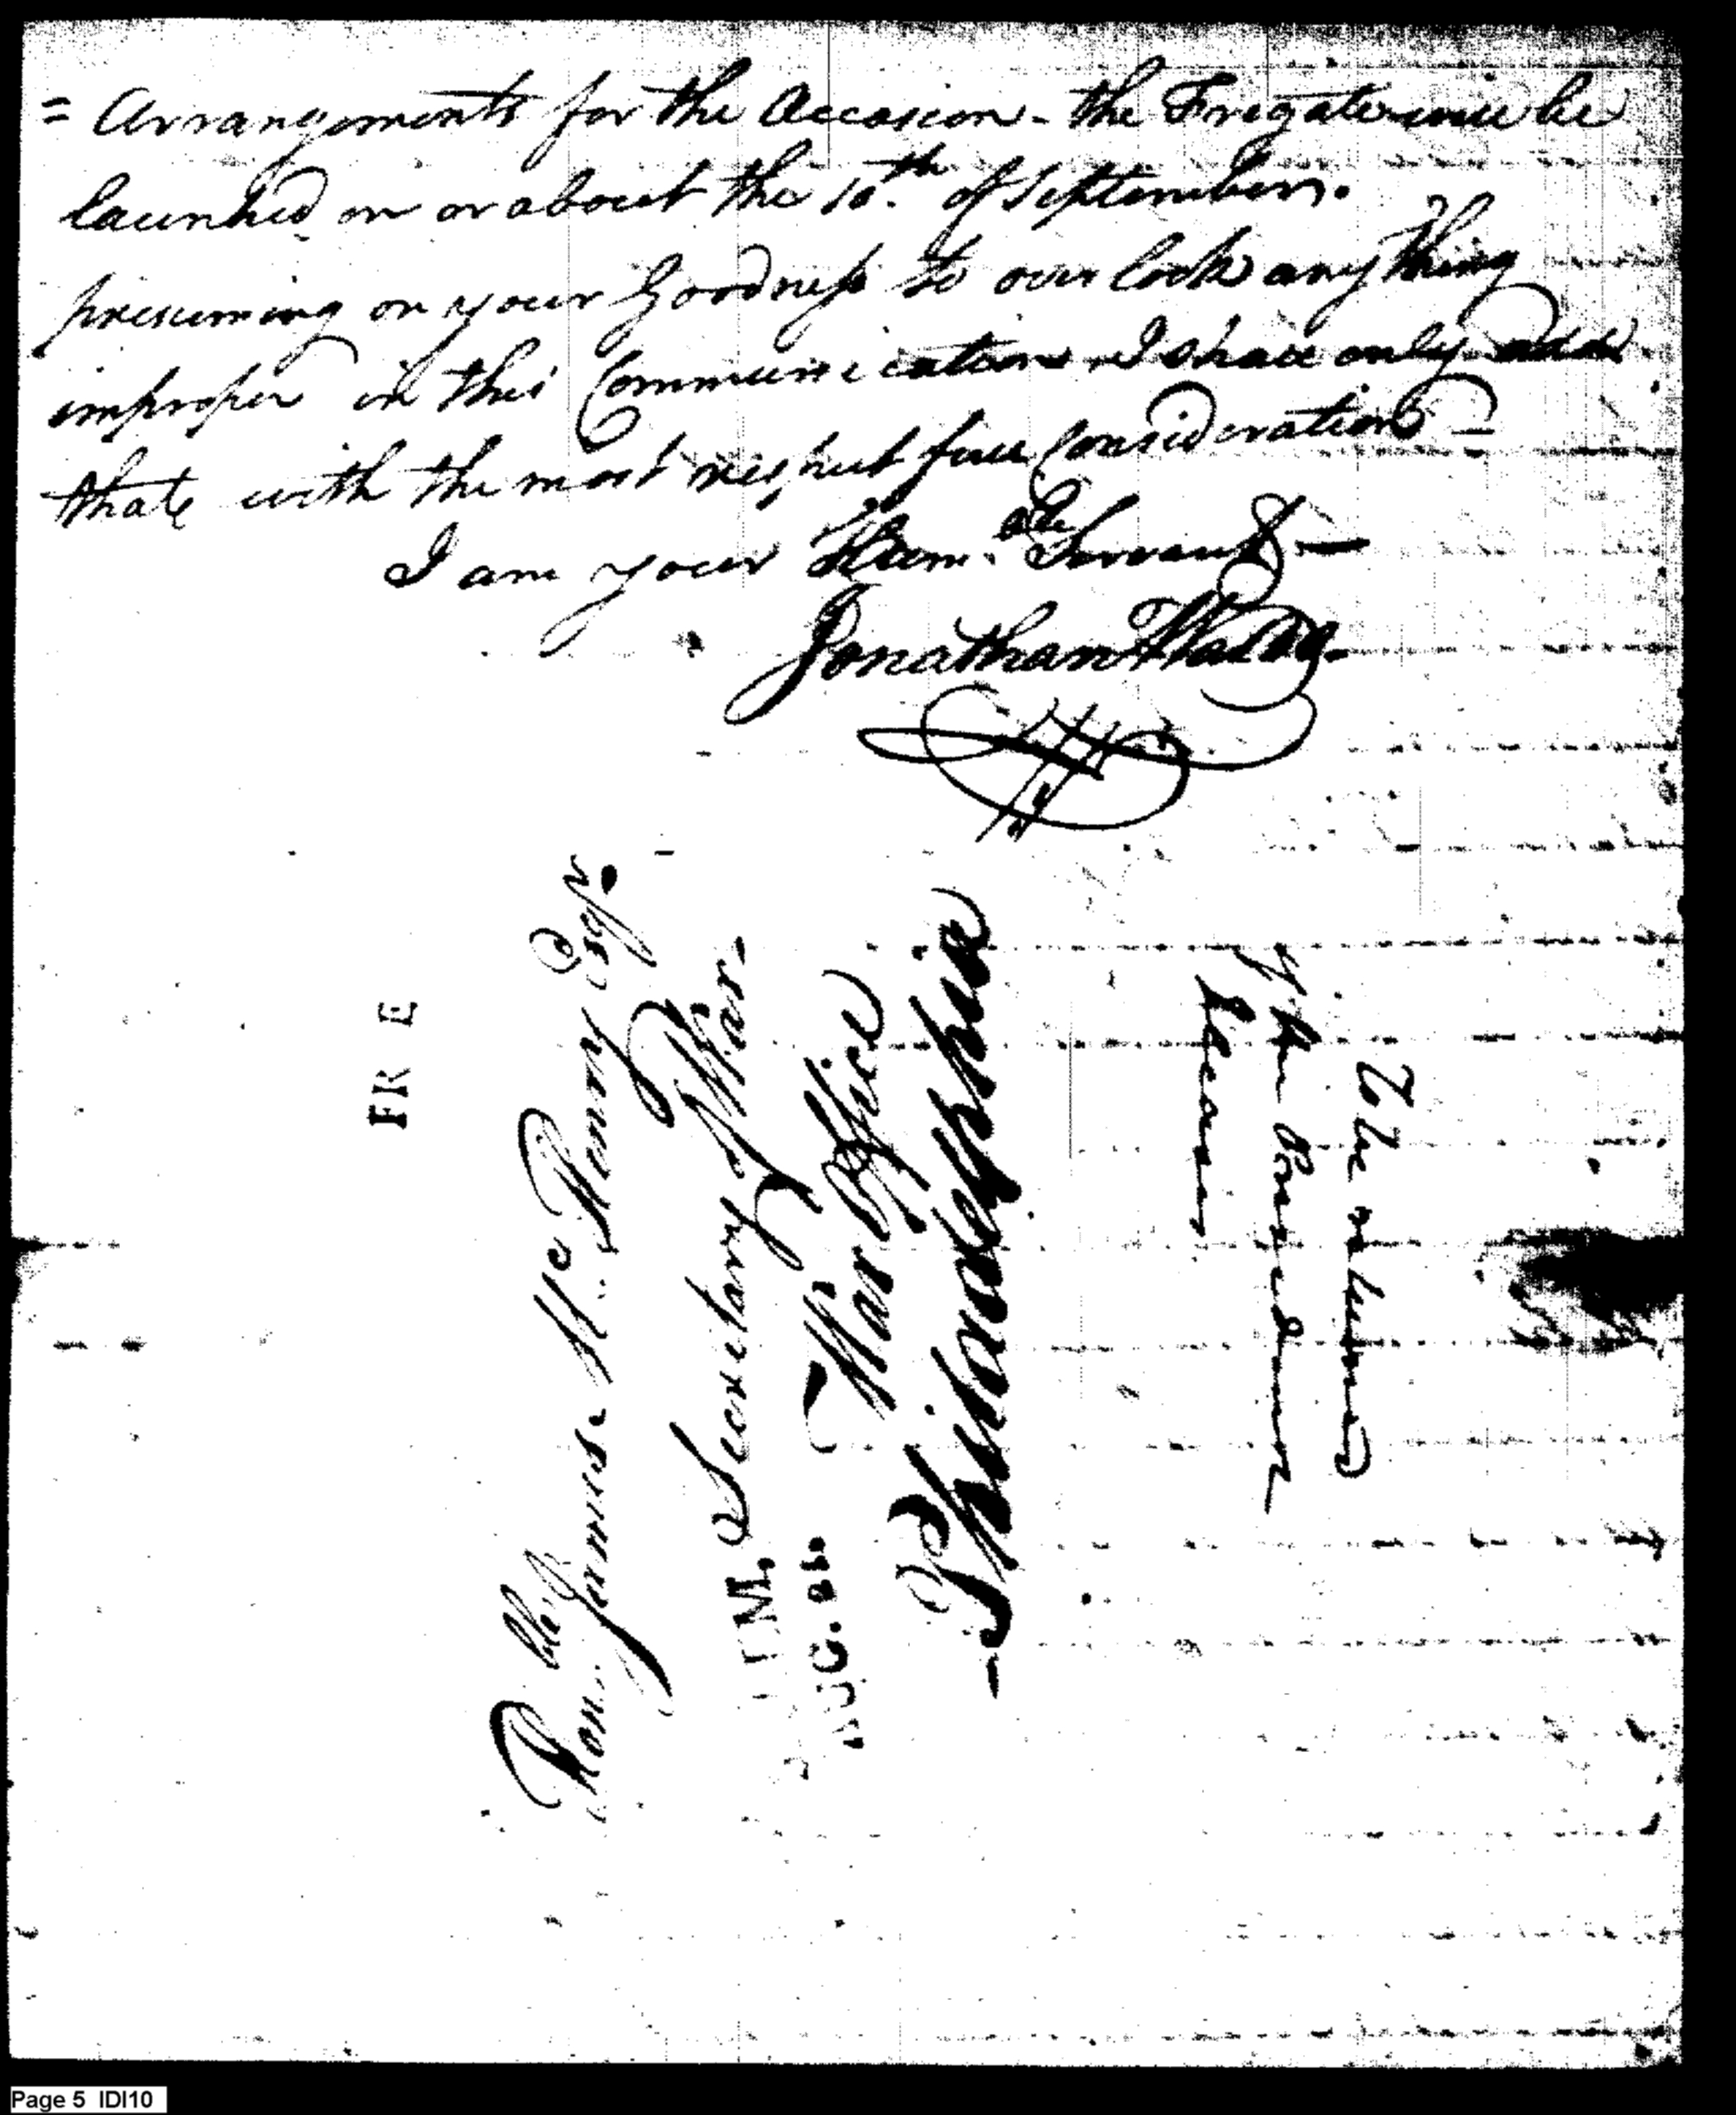 = Arrangements for the Occasion - the Frigate will be
launched on or about the 10th. of September.
presuming on your Goodness to over look any thing
improper in this Communication I shall only add
that with the most respect full Consideration
I am your Hum.ble Servant —
Jonathan
FR E
Hon.ble James McHenry Esqr
Secretary of War.
War Office
Philadelphia
UM.
AUG. 22.
To be returned
if the President
pleases
Page 5 IDI10